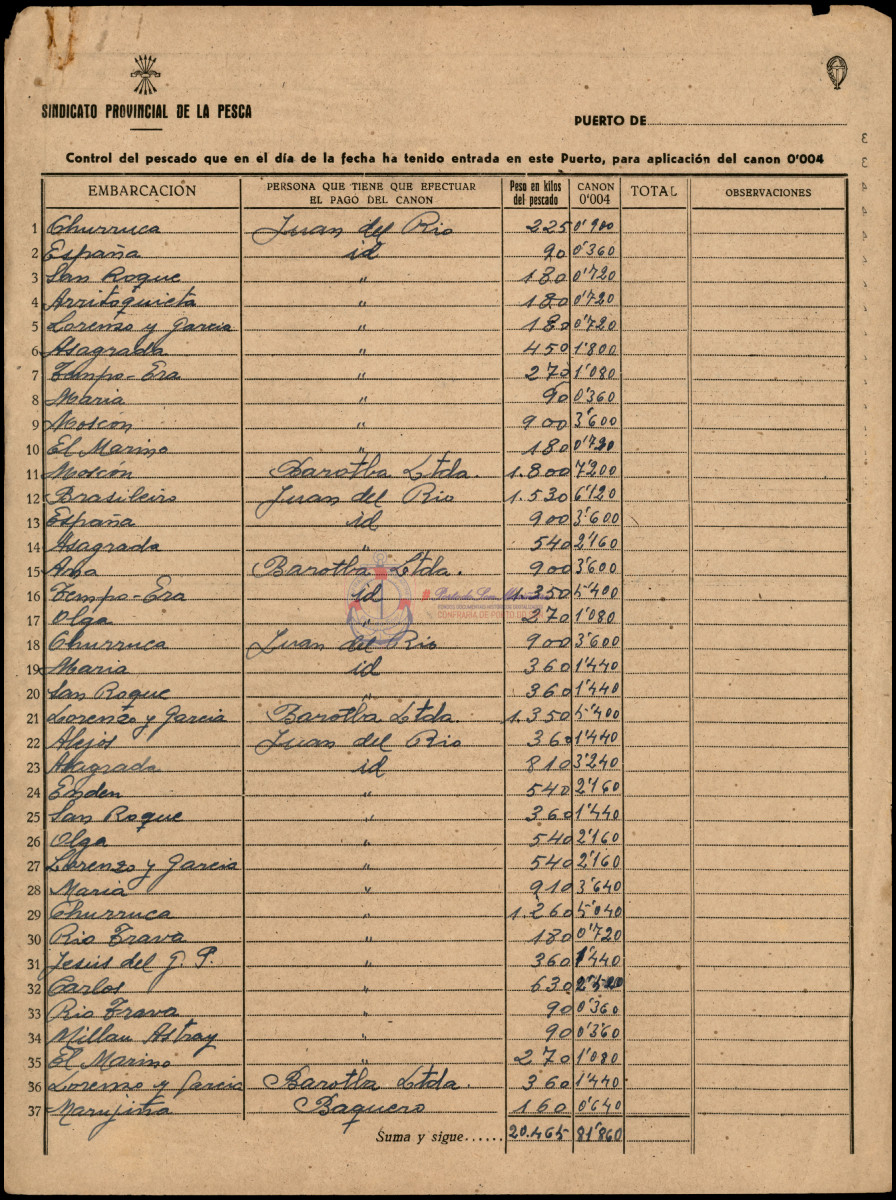 SINDICATO PROVINCIAL DE LA PESCA
PUERTO DE
Control del pescado que en el día de la fecha ha tenido entrada en este Puerto, para aplicación del canon 0'004
EMBARCACIÓN PERSONA QUE TIENE QUE EFECTUAR EL PAGO DEL CANON Peso en kilos del pescado CANON 0'004 TOTAL OBSERVACIONES
1 Churruca Juan del Rio 225 0'900
2 España id 90 0'360
3 San Roque " 180 0'720
4 Arritoquieta " 180 0'720
5 Lorenzo y Garcia " 180 0'720
6 Asagrada " 450 1'800
7 Tempo-Era " 270 1'080
8 Maria " 90 0'360
9 Moscón " 900 3'600
10 El Marino " 180 0'720
11 Moscón Barotba Ltda. 1.800 7'200
12 Brasileiro Juan del Rio 1.530 6'120
13 España id 900 3'600
14 Asagrada " 540 2'160
15 Ana Barotba Ltda. 900 3'600
16 Tempo-Era id 1.350 5'400
17 Olga " 270 1'080
18 Churruca Juan del Rio 900 3'600
19 Maria id 360 1'440
20 San Roque " 360 1'440
21 Lorenzo y Garcia Barotba Ltda. 1.350 5'400
22 Alejos Juan del Rio 360 1'440
23 Asagrada id 810 3'240
24 Enden " 540 2'160
25 San Roque " 360 1'440
26 Olga " 540 2'160
27 Lorenzo y Garcia " 540 2'160
28 Maria " 910 3'640
29 Churruca " 1.260 5'040
30 Rio Trava " 180 0'720
31 Jesús del G. P. " 360 1'440
32 Carlos " 630 2'520
33 Rio Trava " 90 0'360
34 Millan Astray " 90 0'360
35 El Marino " 270 1'080
36 Lorenzo y Garcia Barotba Ltda. 360 1'440
37 Marujita Baquero 160 0'640
Suma y sigue...... 20.465 81'860